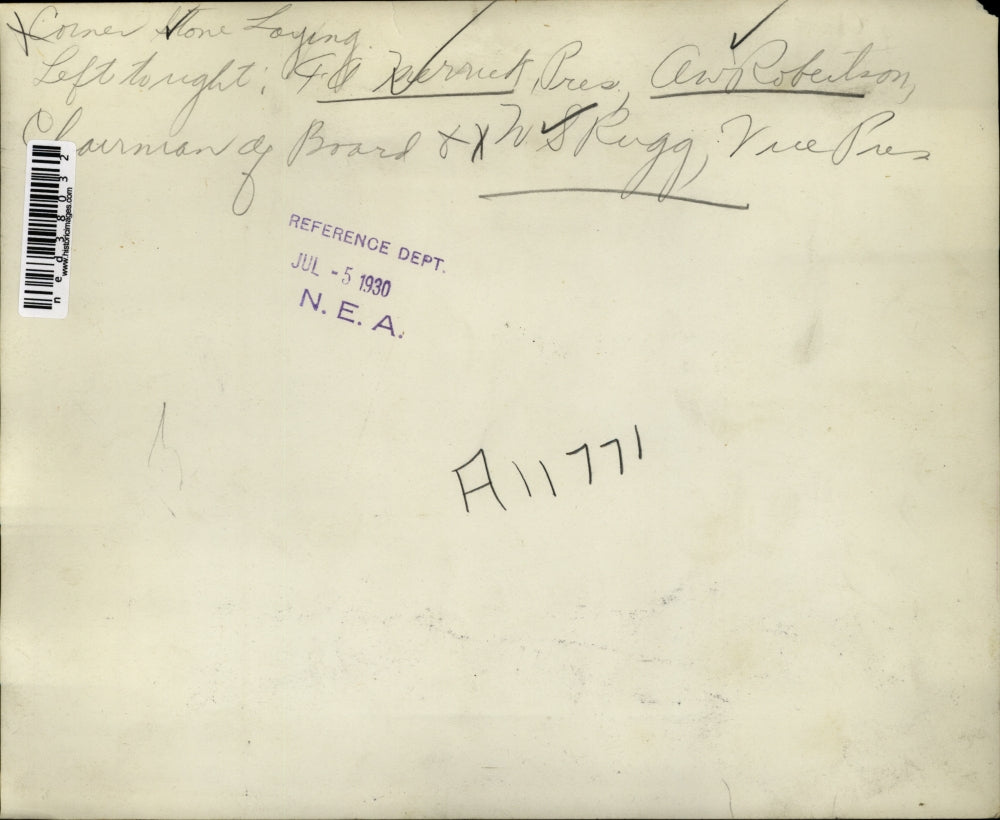 Corner Stone Laying.
Left to right: F A Merrick, Pres., AW Robertson,
Chairman of Board & W S Rugg, Vice Pres
REFERENCE DEPT.
JUL - 5 1930
N. E. A.
A11771
ned38032
www.historicimages.com